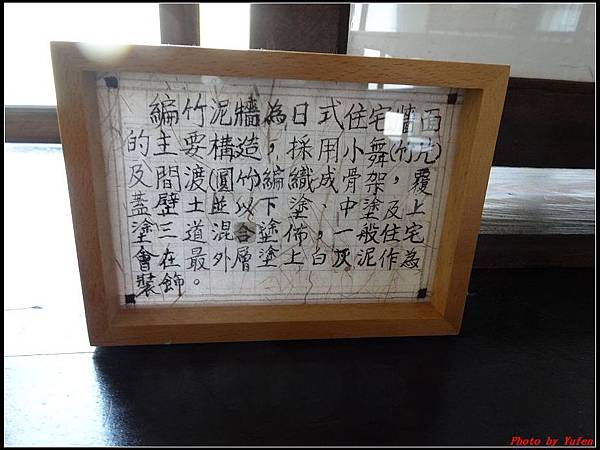 編竹泥牆為日式住宅牆面
的主要構造，採用小舞(竹片)
及間渡(圓竹)編織成骨架，覆
蓋壁土並以下塗、中塗及上
塗三道混合塗佈。一般住宅
會在最外層塗上白灰泥作為
裝飾。
Photo by Yufen